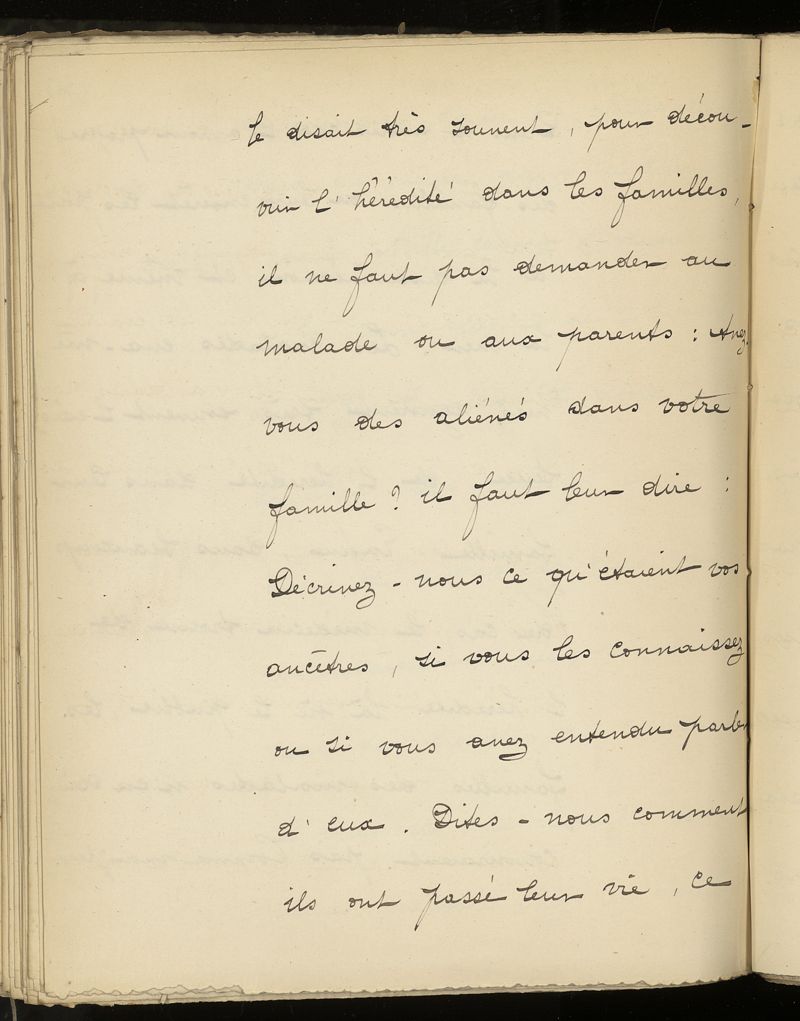 le disait très souvent, pour décou-
vrir l'hérédité dans les familles,
il ne faut pas demander au
malade ou aux parents : Avez
vous des aliénés dans votre
famille ? il faut leur dire :
Décrivez-nous ce qu'étaient vos
ancêtres, si vous les connaissez
ou si vous avez entendu parler
d'eux. Dites-nous comment
ils ont passé leur vie, ce